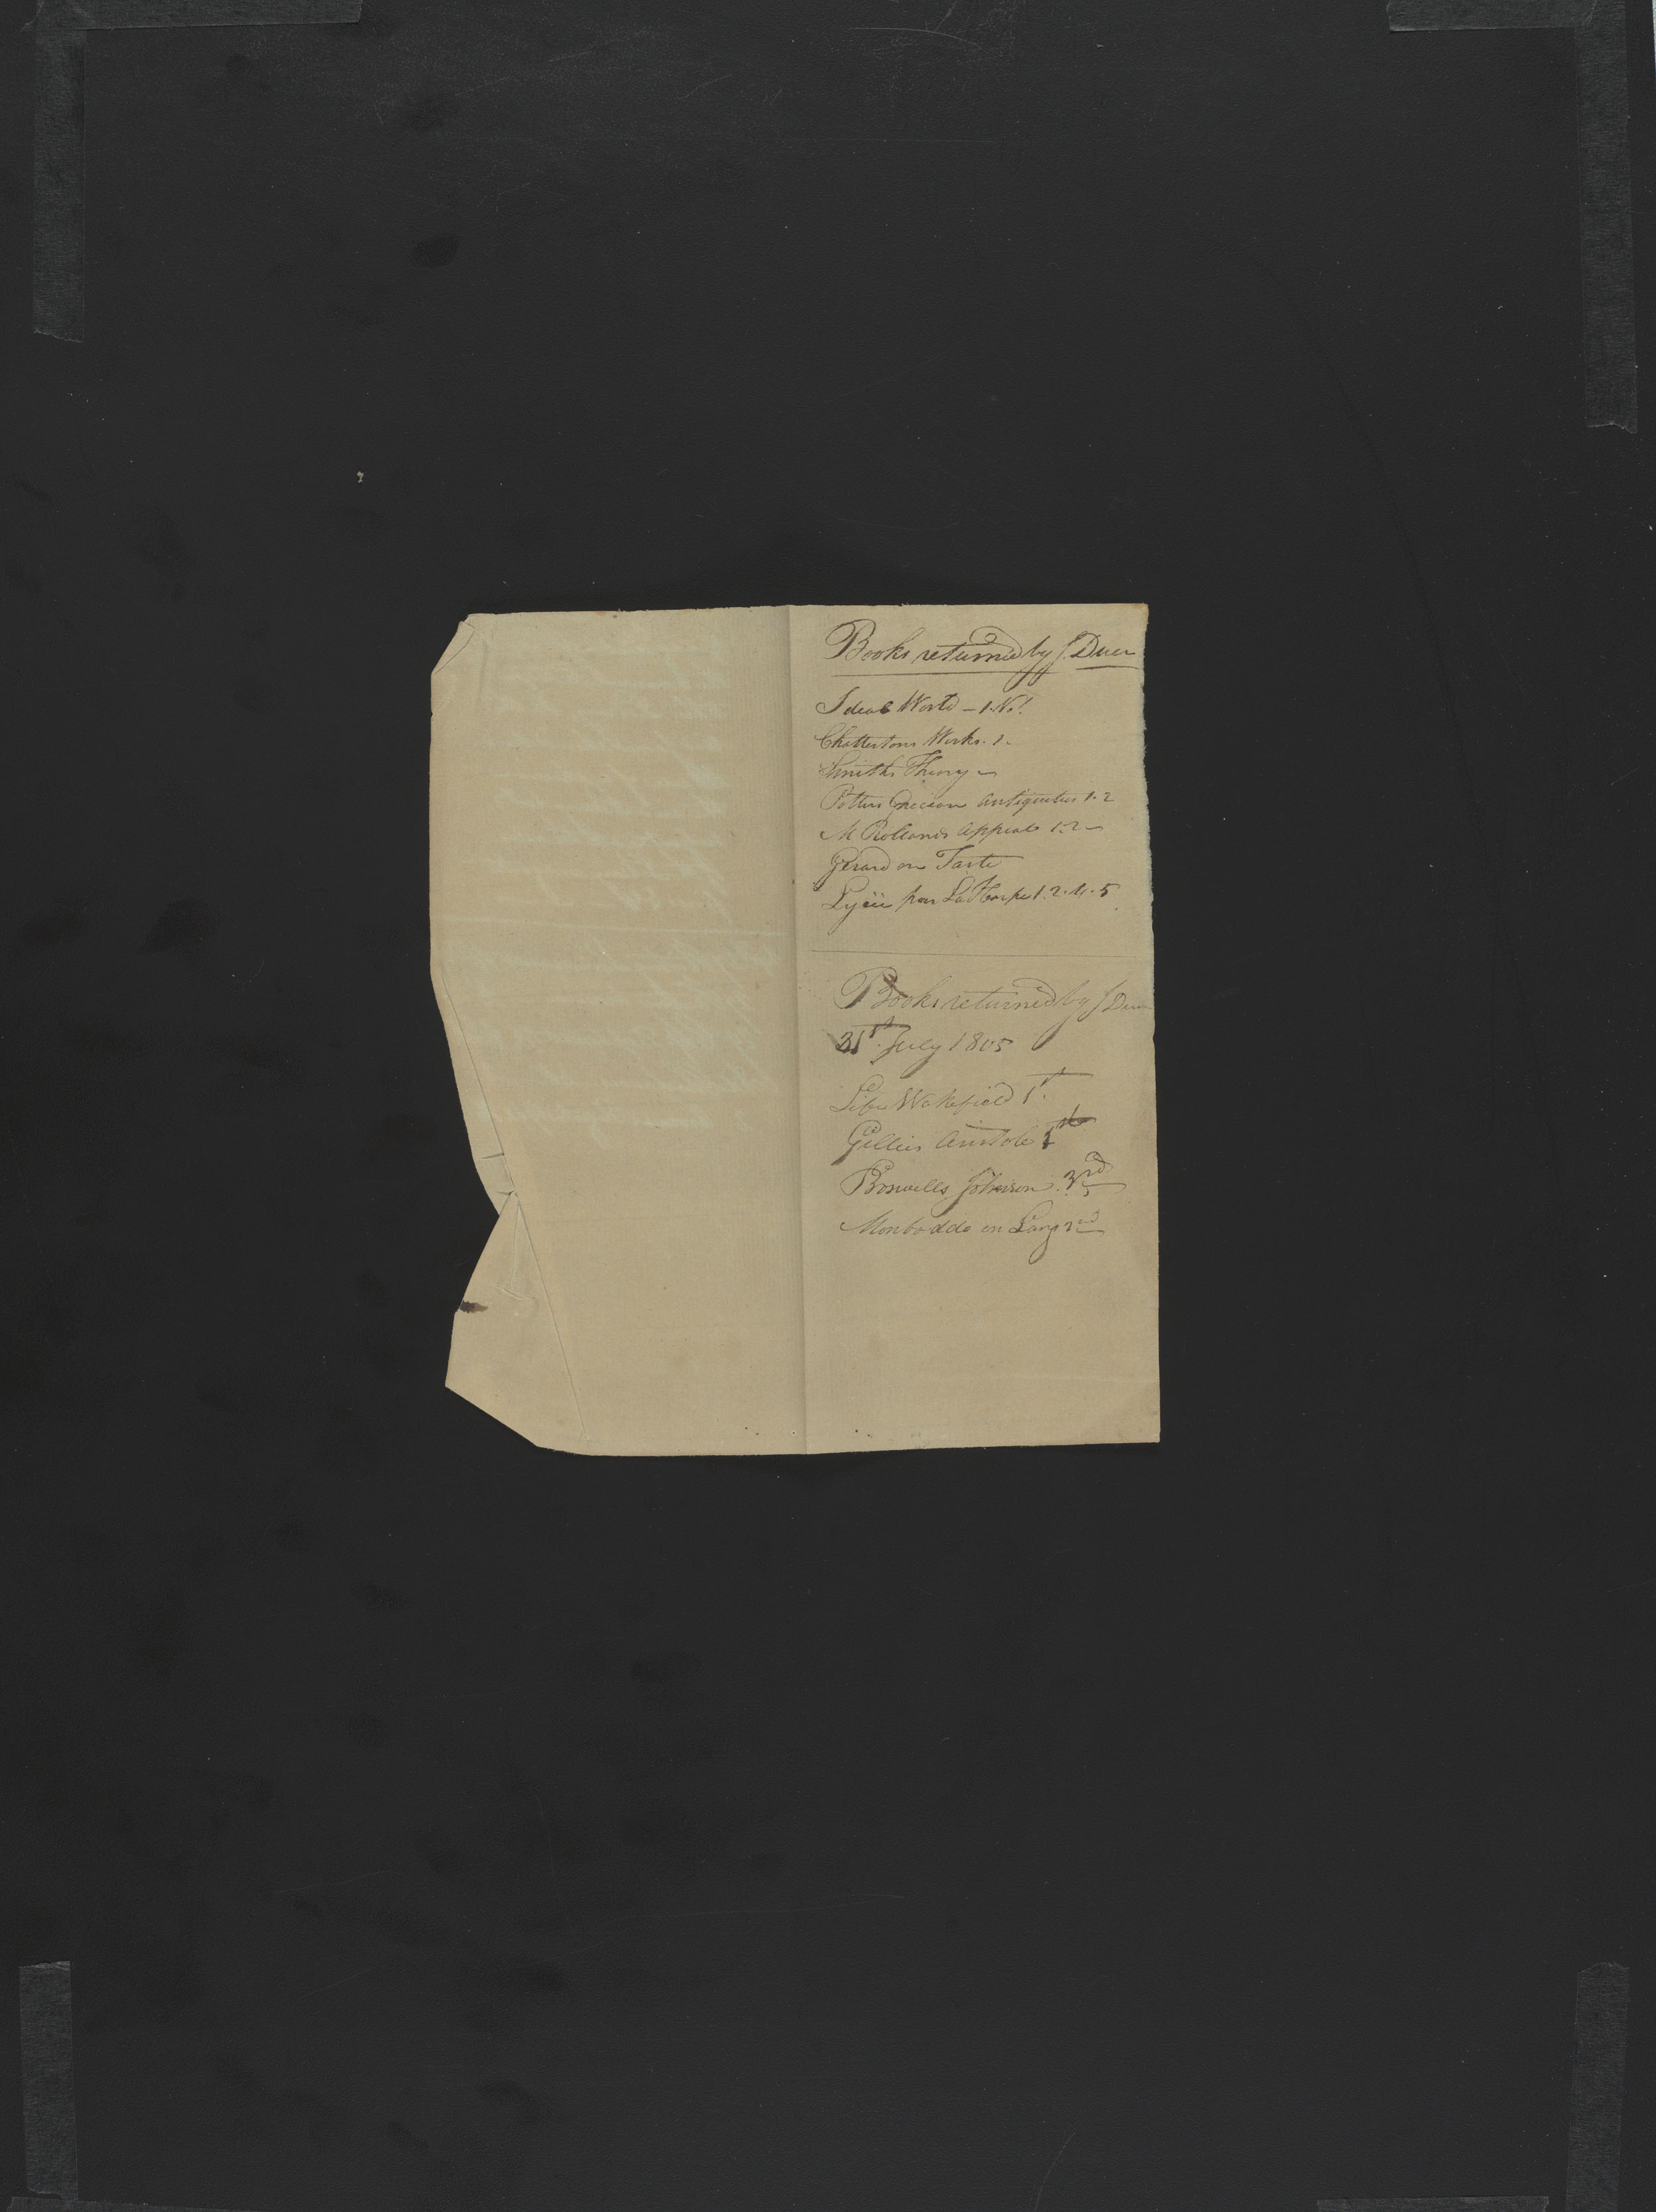 Books returned by J. Duer
Ideal World – 1. No!
Chattertons Works. 1.
Smiths Theory –
Potters Grecian Antiquities 1. 2
M Rollands Appeal 1. 2 –
Gerard on Taste
Lyçée par La Harpe 1. 2. 4. 5
Books returned by J Duer
31st July 1805
Life Wakefield 1st.
Gillies Aristotle 1st
Boswells Johnson. 3rd
Monboddo on Lang 2nd